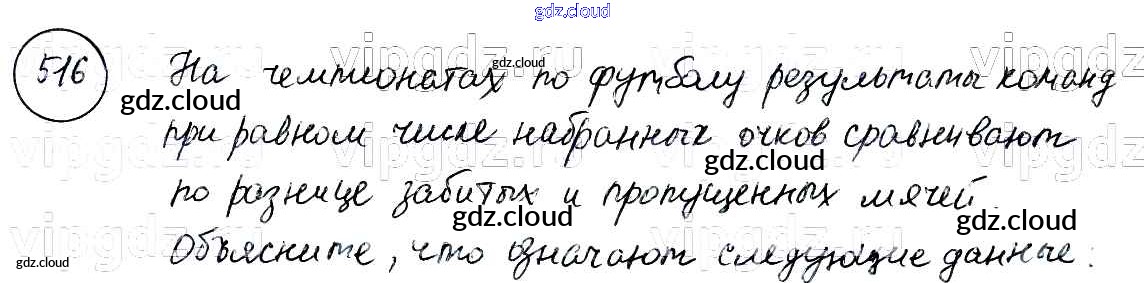 gdz.cloud
516 На чемпионатах по футболу результаты команд
gdz.cloud
gdz.cloud
при равном числе набранных очков сравнивают
gdz.cloud
по разнице забитых и пропущенных мячей.
gdz.cloud
gdz.cloud
Объясните, что означают следующие данные:
gdz.cloud
gdz.cloud
vipgdz.ru vipgdz.ru vipgdz.ru
vipgdz.ru vipgdz.ru vipgdz.ru
vipgdz.ru vipgdz.ru vipgdz.ru